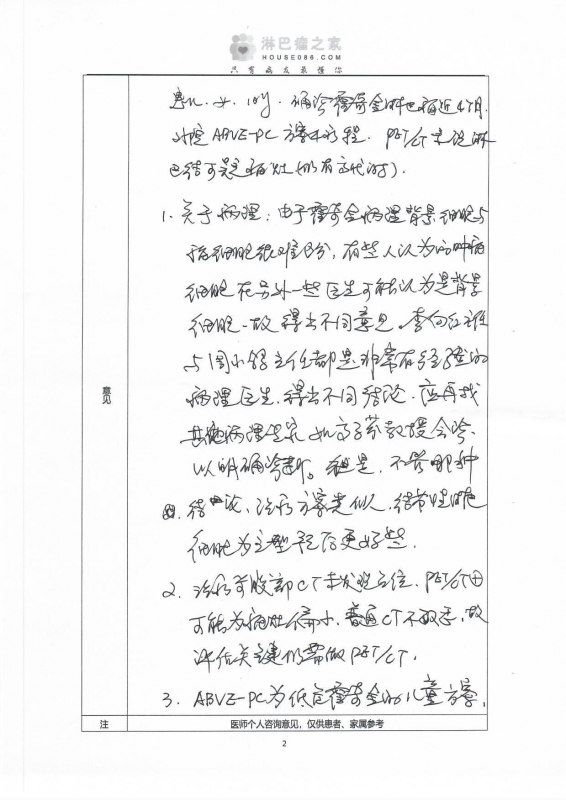 淋巴瘤之家
HOUSE086.COM
只有病友最懂你
患儿.女.10岁.确诊霍奇金淋巴瘤近4个月.
外院ABVE-PC方案4疗程.PET/CT未说淋
巴结可是病灶(仍有代谢).
1.关于病理:由于霍奇金病理背景细胞与
瘤细胞很难区分,有些人认为的肿瘤
细胞在另外一些医生可能认为是背景
细胞.故得出不同意见.李向红主任
与周小鸽主任都是非常有经验的
病理医生.得出不同结论.应再找
其他病理专家如高子芬教授会诊.
以明确诊断.但是,不管哪种
结论,治疗方案类似.结节性淋巴
细胞为主型预后更好些.
2.治疗前腹部CT未发现占位.PET/CT
可能为病灶偏小,普通CT不敏感,故
评估关键仍需做PET/CT.
3.ABVE-PC为低危霍奇金的儿童方案,
意见
注
医师个人咨询意见,仅供患者、家属参考
2